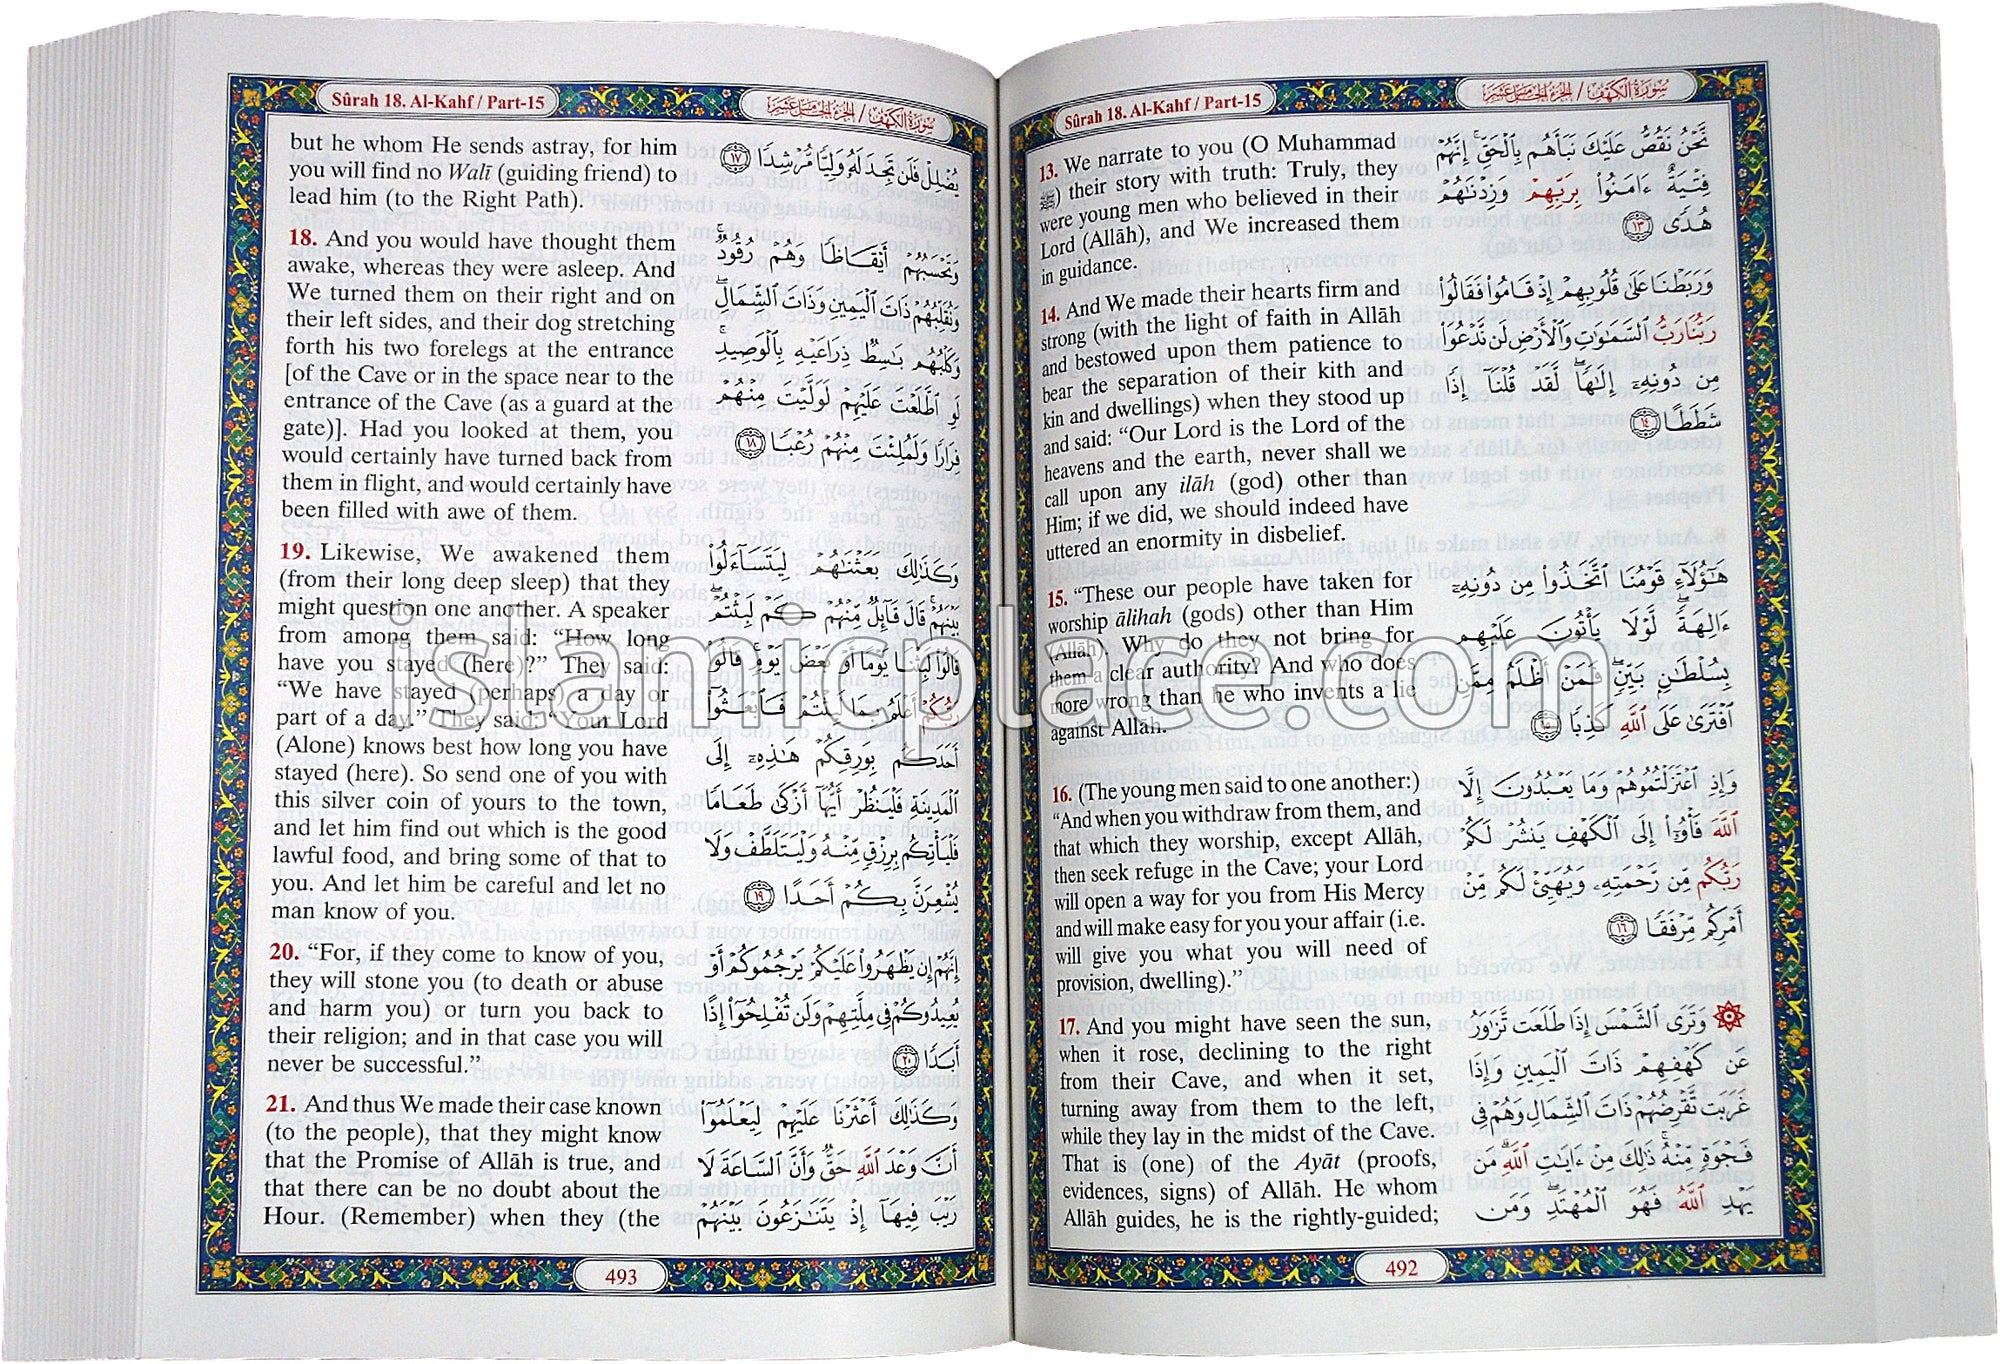 Sûrah 18. Al-Kahf / Part-15
سورة الكهف / الجزء الخامس عشر
13. We narrate to you (O Muhammad
ﷺ) their story with truth: Truly, they
were young men who believed in their
Lord (Allâh), and We increased them
in guidance.
نَّحْنُ نَقُصُّ عَلَيْكَ نَبَأَهُم بِالْحَقِّ ۚ إِنَّهُمْ
فِتْيَةٌ ءَامَنُوا۟ بِرَبِّهِمْ وَزِدْنَـٰهُمْ
هُدًى ﴿١٣﴾
14. And We made their hearts firm and
strong (with the light of faith in Allâh
and bestowed upon them patience to
bear the separation of their kith and
kin and dwellings) when they stood up
and said: “Our Lord is the Lord of the
heavens and the earth, never shall we
call upon any ilâh (god) other than
Him; if we did, we should indeed have
uttered an enormity in disbelief.
وَرَبَطْنَا عَلَىٰ قُلُوبِهِمْ إِذْ قَامُوا۟ فَقَالُوا۟
رَبُّنَا رَبُّ السَّمَـٰوَٰتِ وَالْأَرْضِ لَن نَّدْعُوَا۟
مِن دُونِهِۦٓ إِلَـٰهًا ۖ لَّقَدْ قُلْنَآ إِذًا
شَطَطًا ﴿١٤﴾
15. “These our people have taken for
worship âlihah (gods) other than Him
(Allâh). Why do they not bring for
them a clear authority? And who does
more wrong than he who invents a lie
against Allâh.
هَـٰٓؤُلَآءِ قَوْمُنَا اتَّخَذُوا۟ مِن دُونِهِۦٓ
ءَالِهَةً ۖ لَّوْلَا يَأْتُونَ عَلَيْهِم
بِسُلْطَـٰنٍۭ بَيِّنٍ ۖ فَمَنْ أَظْلَمُ مِمَّنِ
افْتَرَىٰ عَلَى اللَّهِ كَذِبًا ﴿١٥﴾
16. (The young men said to one another:)
“And when you withdraw from them, and
that which they worship, except Allâh,
then seek refuge in the Cave; your Lord
will open a way for you from His Mercy
and will make easy for you your affair (i.e.
will give you what you will need of
provision, dwelling).”
وَإِذِ اعْتَزَلْتُمُوهُمْ وَمَا يَعْبُدُونَ إِلَّا
اللَّهَ فَأْوُۥٓا۟ إِلَى الْكَهْفِ يَنشُرْ لَكُمْ
رَبُّكُم مِّن رَّحْمَتِهِۦ وَيُهَيِّئْ لَكُم مِّنْ
أَمْرِكُم مِّرْفَقًا ﴿١٦﴾
17. And you might have seen the sun,
when it rose, declining to the right
from their Cave, and when it set,
turning away from them to the left,
while they lay in the midst of the Cave.
That is (one) of the Ayât (proofs,
evidences, signs) of Allâh. He whom
Allâh guides, he is the rightly-guided;
۞ وَتَرَى الشَّمْسَ إِذَا طَلَعَت تَّزَٰوَرُ
عَن كَهْفِهِمْ ذَاتَ الْيَمِينِ وَإِذَا
غَرَبَت تَّقْرِضُهُمْ ذَاتَ الشِّمَالِ وَهُمْ فِى
فَجْوَةٍ مِّنْهُ ۚ ذَٰلِكَ مِنْ ءَايَـٰتِ اللَّهِ ۗ مَن
يَهْدِ اللَّهُ فَهُوَ الْمُهْتَدِ ۖ وَمَن
492
Sûrah 18. Al-Kahf / Part-15
سورة الكهف / الجزء الخامس عشر
but he whom He sends astray, for him
you will find no Walî (guiding friend) to
lead him (to the Right Path).
يُضْلِلْ فَلَن تَجِدَ لَهُۥ وَلِيًّا مُّرْشِدًا ﴿١٧﴾
18. And you would have thought them
awake, whereas they were asleep. And
We turned them on their right and on
their left sides, and their dog stretching
forth his two forelegs at the entrance
[of the Cave or in the space near to the
entrance of the Cave (as a guard at the
gate)]. Had you looked at them, you
would certainly have turned back from
them in flight, and would certainly have
been filled with awe of them.
وَتَحْسَبُهُمْ أَيْقَاظًا وَهُمْ رُقُودٌ ۚ
وَنُقَلِّبُهُمْ ذَاتَ الْيَمِينِ وَذَاتَ الشِّمَالِ ۖ
وَكَلْبُهُم بَـٰسِطٌ ذِرَاعَيْهِ بِالْوَصِيدِ ۚ
لَوِ اطَّلَعْتَ عَلَيْهِمْ لَوَلَّيْتَ مِنْهُمْ
فِرَارًا وَلَمُلِئْتَ مِنْهُمْ رُعْبًا ﴿١٨﴾
19. Likewise, We awakened them
(from their long deep sleep) that they
might question one another. A speaker
from among them said: “How long
have you stayed (here)?” They said:
“We have stayed (perhaps) a day or
part of a day.” They said: “Your Lord
(Alone) knows best how long you have
stayed (here). So send one of you with
this silver coin of yours to the town,
and let him find out which is the good
lawful food, and bring some of that to
you. And let him be careful and let no
man know of you.
وَكَذَٰلِكَ بَعَثْنَـٰهُمْ لِيَتَسَآءَلُوا۟
بَيْنَهُمْ ۚ قَالَ قَآئِلٌ مِّنْهُمْ كَمْ لَبِثْتُمْ ۖ
قَالُوا۟ لَبِثْنَا يَوْمًا أَوْ بَعْضَ يَوْمٍ ۚ قَالُوا۟
رَبُّكُمْ أَعْلَمُ بِمَا لَبِثْتُمْ فَابْعَثُوٓا۟
أَحَدَكُم بِوَرِقِكُمْ هَـٰذِهِۦٓ إِلَى
الْمَدِينَةِ فَلْيَنظُرْ أَيُّهَآ أَزْكَىٰ طَعَامًا
فَلْيَأْتِكُم بِرِزْقٍ مِّنْهُ وَلْيَتَلَطَّفْ وَلَا
يُشْعِرَنَّ بِكُمْ أَحَدًا ﴿١٩﴾
20. “For, if they come to know of you,
they will stone you (to death or abuse
and harm you) or turn you back to
their religion; and in that case you will
never be successful.”
إِنَّهُمْ إِن يَظْهَرُوا۟ عَلَيْكُمْ يَرْجُمُوكُمْ أَوْ
يُعِيدُوكُمْ فِى مِلَّتِهِمْ وَلَن تُفْلِحُوٓا۟ إِذًا
أَبَدًا ﴿٢٠﴾
21. And thus We made their case known
(to the people), that they might know
that the Promise of Allâh is true, and
that there can be no doubt about the
Hour. (Remember) when they (the
وَكَذَٰلِكَ أَعْثَرْنَا عَلَيْهِمْ لِيَعْلَمُوٓا۟
أَنَّ وَعْدَ اللَّهِ حَقٌّ وَأَنَّ السَّاعَةَ لَا
رَيْبَ فِيهَآ إِذْ يَتَنَـٰزَعُونَ بَيْنَهُمْ
493
islamicplace.com